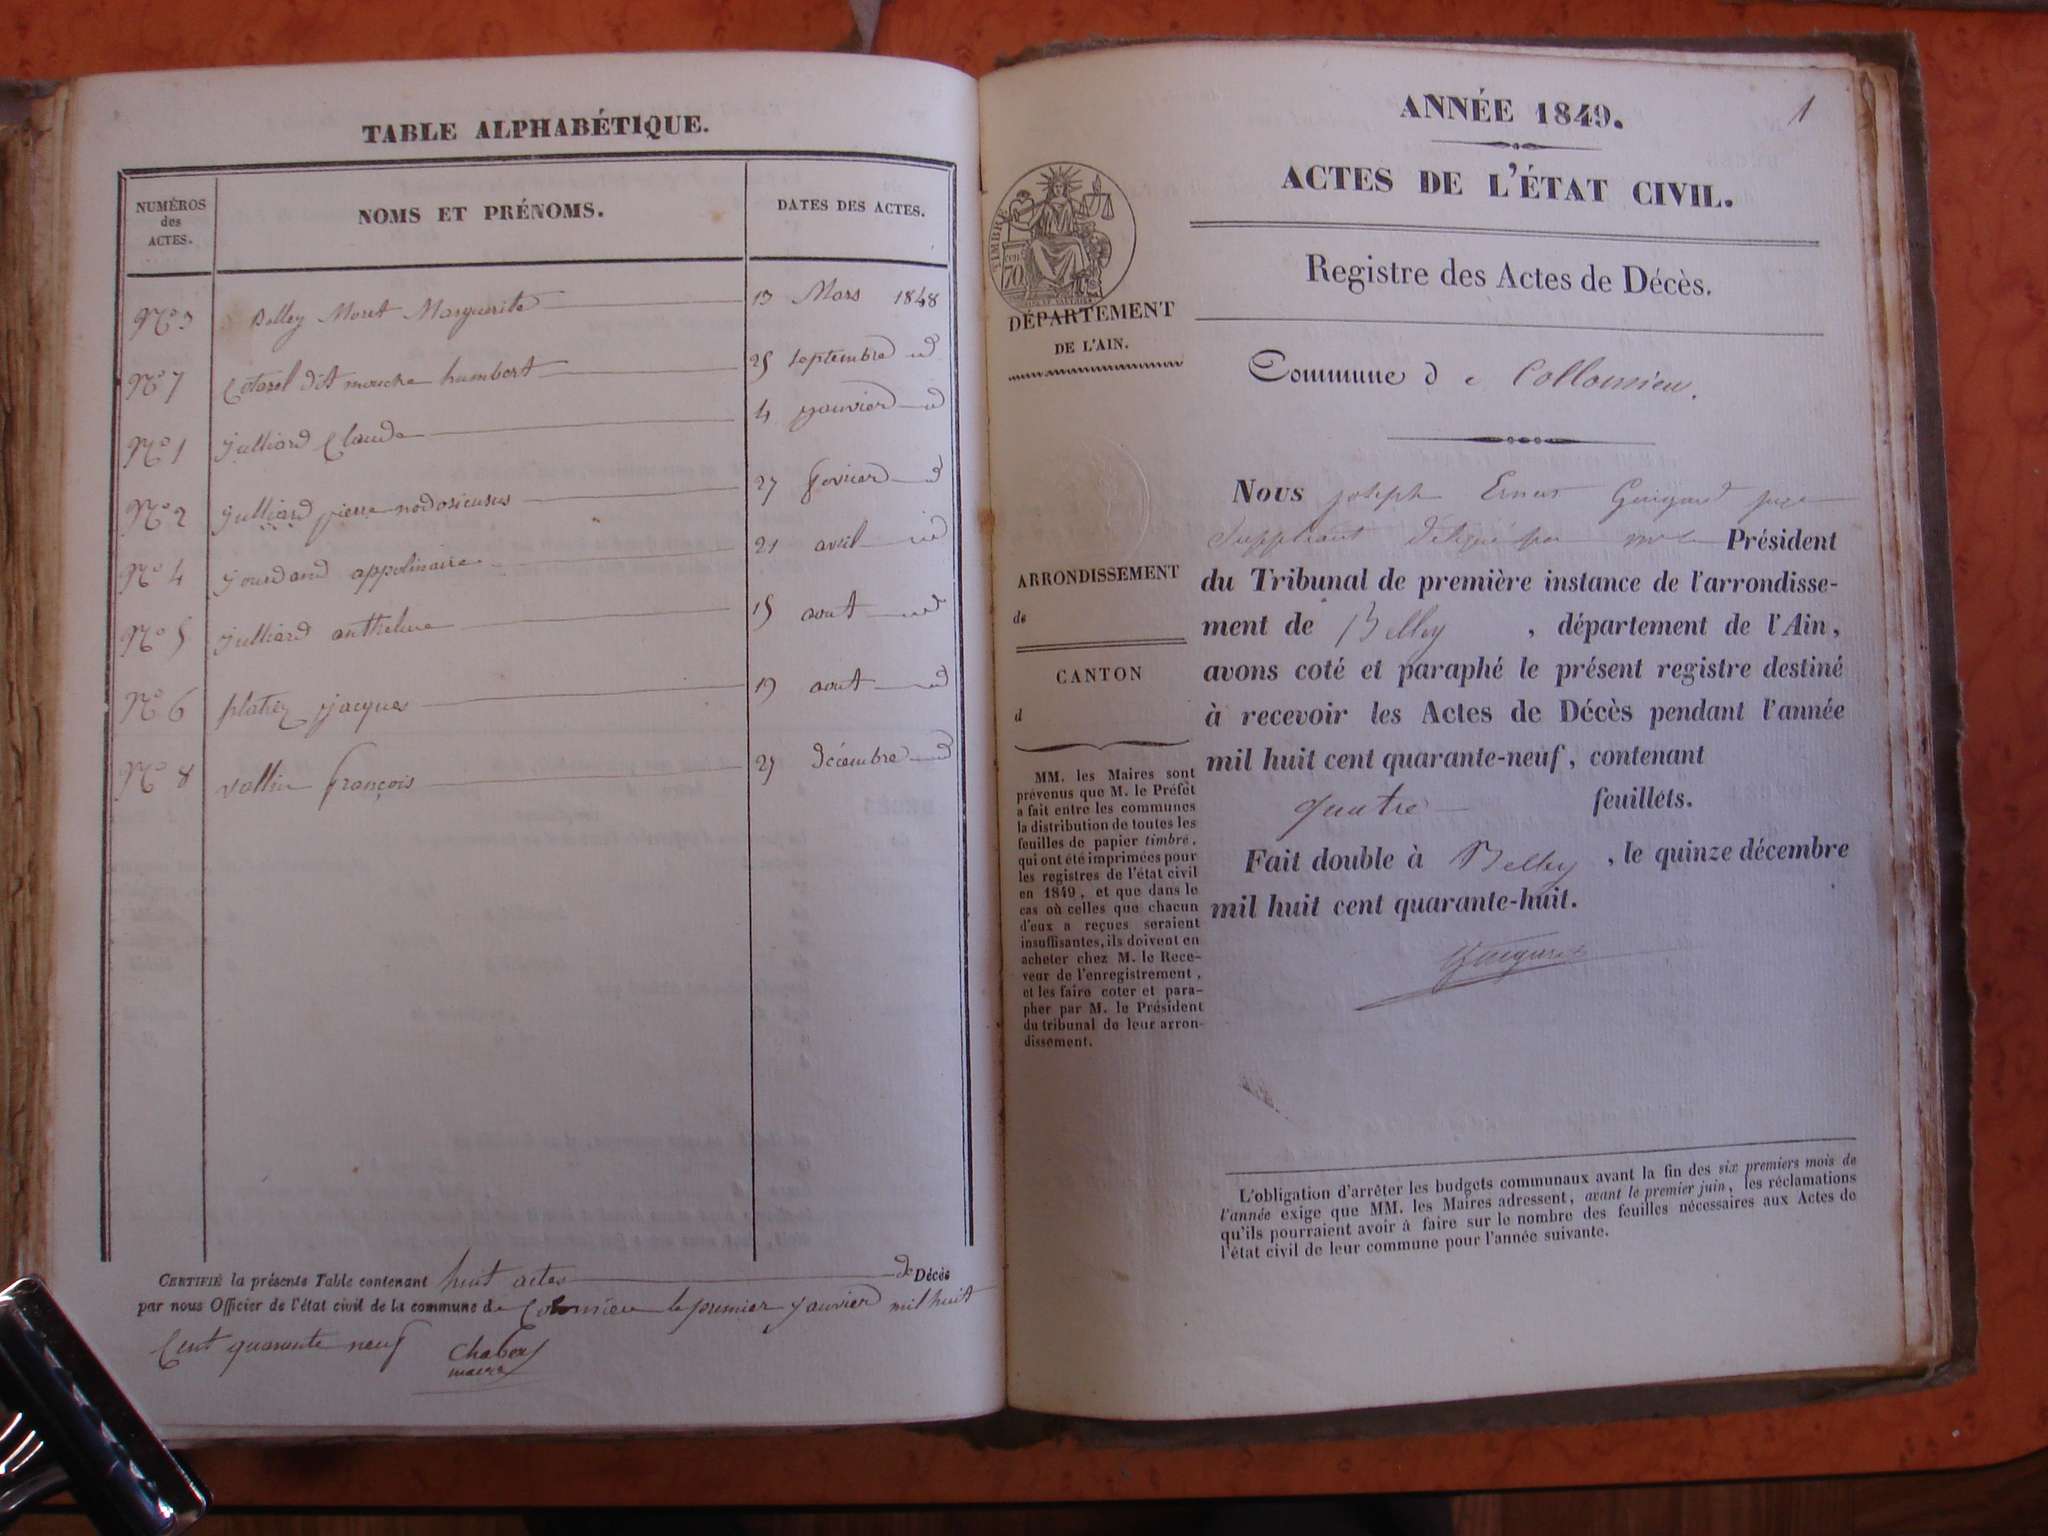 TABLE ALPHABÉTIQUE.
NUMÉROS
des
ACTES.
NOMS ET PRÉNOMS.
DATES DES ACTES.
N° 3 Bolley Moret Marguerite 13 Mars 1848
N° 7 Cotarel dit mouche humbert 25 septembre id
N° 1 julliard Claude 4 janvier id
N° 2 julliard pierre 27 fevrier id
N° 4 jourdand appolinaire 21 avril id
N° 5 julliard anthelme 15 aout id
N° 6 jacques 19 aout id
N° 8 vallin françois décembre id
CERTIFIÉ la présente Table contenant huit actes de Décès
par nous Officier de l'état civil de la commune de Colomieu le premier janvier mil huit
Cent quarante neuf
Chabert
maire
1
ANNÉE 1849.
ACTES DE L'ÉTAT CIVIL.
Registre des Actes de Décès.
TIMBRE
cen
70
DÉPARTEMENT
DE L'AIN.
Commune d e Collomieu.
ARRONDISSEMENT
de
CANTON
d
MM. les Maires sont
prévenus que M. le Préfet
a fait entre les communes
la distribution de toutes les
feuilles de papier timbré,
qui ont été imprimées pour
les registres de l'état civil
en 1849, et que dans le
cas où celles que chacun
d'eux a reçues seraient
insuffisantes, ils doivent en
acheter chez M. le Rece-
veur de l'enregistrement,
et les faire coter et para-
pher par M. le Président
du tribunal de leur arron-
dissement.
Nous joseph Guigard juge
suppléant délégué par Président
du Tribunal de première instance de l'arrondisse-
ment de Belley, département de l'Ain,
avons coté et paraphé le présent registre destiné
à recevoir les Actes de Décès pendant l'année
mil huit cent quarante-neuf, contenant
quatre feuillets.
Fait double à Belley, le quinze décembre
mil huit cent quarante-huit.
L'obligation d'arrêter les budgets communaux avant la fin des six premiers mois de
l'année exige que MM. les Maires adressent, avant le premier juin, les réclamations
qu'ils pourraient avoir à faire sur le nombre des feuilles nécessaires aux Actes de
l'état civil de leur commune pour l'année suivante.